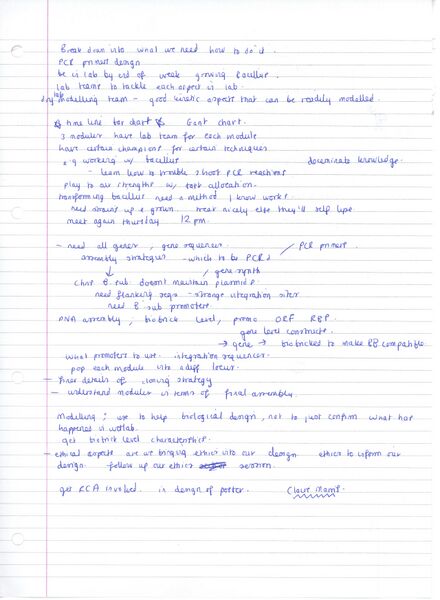 Break down into what we need how to do it.
PCR primers design
be in lab by end of week growing Bacillus.
lab teams to tackle each aspect in lab.
dry lab modelling team - good kinetic aspects that can be readily modelled.
time line bar chart Gant chart.
3 modules have lab team for each module
have certain champions for certain techniques.
e.g working w/ bacillus disseminate knowledge.
- learn how to trouble shoot PCR reactions
play to our strengths w/ task allocation.
transforming bacillus need a method I know works.
need strains up & grown. treat nicely else they'll self lyse.
meet again thursday 12pm.
- need all genes, gene sequences / PCR primers
assembly strategies - which to be PCR'd
↓ / gene synth
chr B. sub doesn't maintain plasmids.
need flanking seqs - strange integration sites
need B sub promoters.
DNA assembly, biobrick level, promo ORF RBP.
gene level constructs.
→ gene → biobricked to make BB compatible.
what promoters to use. integration sequences.
pop each module into a diff locus.
- finer details of cloning strategy
- understand modules in terms of final assembly.
Modelling: use to help biological design, not to just confirm what has
happened in wetlab.
get biobrick level characteristics.
- ethical aspects are we bringing ethics into our design ethics to inform our
design. follow up our ethics session.
get RCA involved. in design of poster.